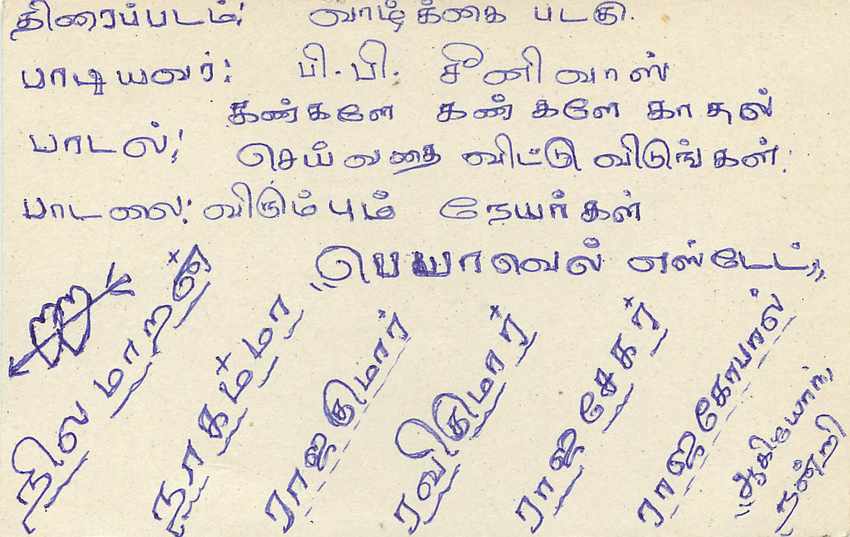 திரைப்படம்: வாழ்க்கை படகு.
பாடியவர்: பி.பி. சீனிவாஸ்
பாடல்: கண்களே கண்களே காதல்
செய்வதை விட்டுவிடுங்கள்.
பாடலை: விரும்பும் நேயர்கள்
"பெயாவெல் எஸ்டேட்"
நிலமாறன்
நாகம்மா
ராஜகுமார்
ரவிகுமார்
ராஜசேகர்
ராஜகோபால்
"ஆகியோர்"
"நன்றி